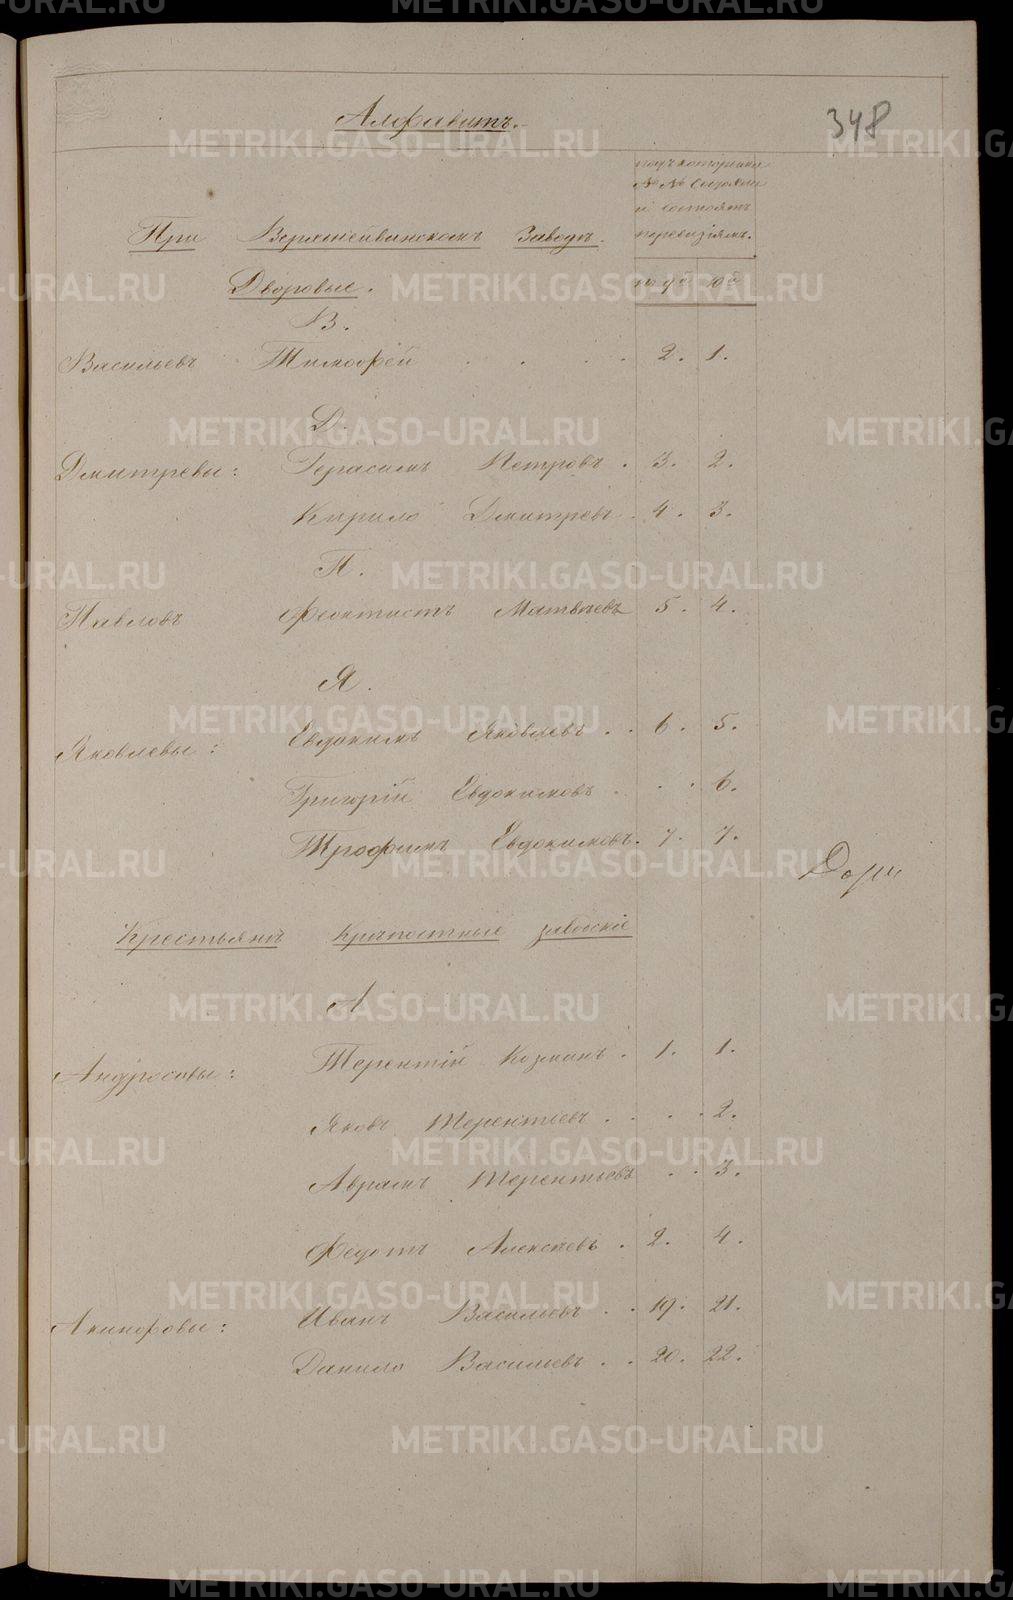 Алфавитъ.
348
подъ которыми
№ № состояли
и состоятъ
по ревизіямъ.
При Верхнейвинскомъ Заводѣ.
по 9й 10й
Дворовые.
В.
Васильевъ Тимофей . . . 2. 1.
Д.
Дмитревы: Герасимъ Петровъ . 3. 2.
Кирило Дмитревъ . 4. 3.
П.
Павловъ Феоктистъ Матвѣевъ 5. 4.
Я.
Яковлевы: Евдокимъ Яковлевъ . . 6. 5.
Григорій Евдокимовъ . . . 6.
Трофимъ Евдокимовъ. 7. 7.
Крестьянъ Крѣпостные заводскіе
А
Андросовы: Терентій Козминъ . 1. 1.
Яковъ Терентьевъ . . . . 2.
Аврамъ Терентьевъ . . 3.
Федотъ Алексѣевъ . 2. 4.
Акинфовы: Иванъ Васильевъ . . 19. 21.
Данило Васильевъ . . 20. 22.
METRIKI.GASO-URAL.RU